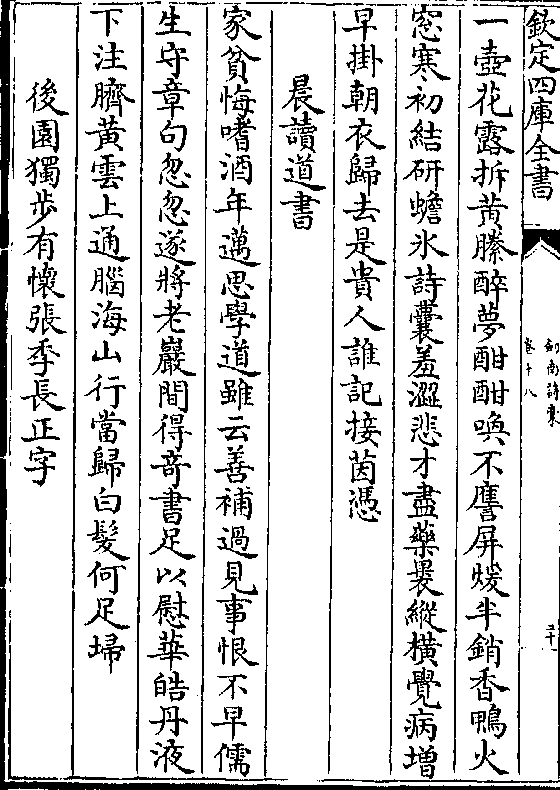 欽定四庫全書
劍南詩稾
卷十八
一壺花露拆黄縢醉夢酣酣喚不譍屏煖半銷香鴨火
窓寒初結研蟾氷詩囊羞澀悲才盡藥裹縱橫覺病增
早掛朝衣歸去是貴人誰記接茵憑
晨讀道書
家貧悔嗜酒年邁思學道雖云善補過見事恨不早儒
生守章句忽忽遂將老巖間得竒書足以慰華皓丹液
下注臍黄雲上通腦海山行當歸白髪何足埽
後園獨歩有懷張季長正字